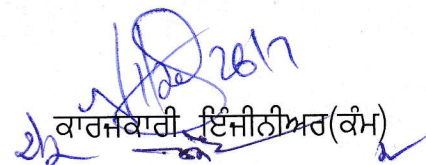 26/7
ਕਾਰਜਕਾਰੀ ਇੰਜੀਨੀਅਰ(ਕੰਮ)